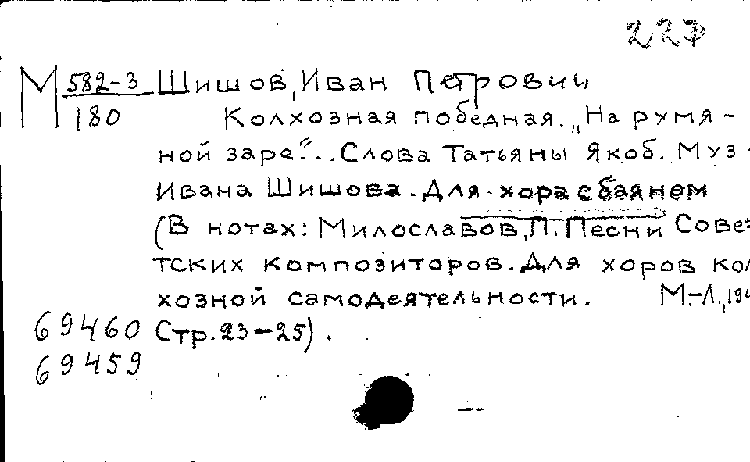 227
М 582-3 Шишов, Иван Петрович
180 Колхозная победная. „На румя-
ной заре"... Слова Татьяны Якоб. Муз.
Ивана Шишова. Для хора с баянем
(В нотах: Милославов, П. Песни Сове-
тских композиторов. Для хоров кол
хозной самодеятельности. М.-Л., 194
69460 Стр. 23-25).
69459